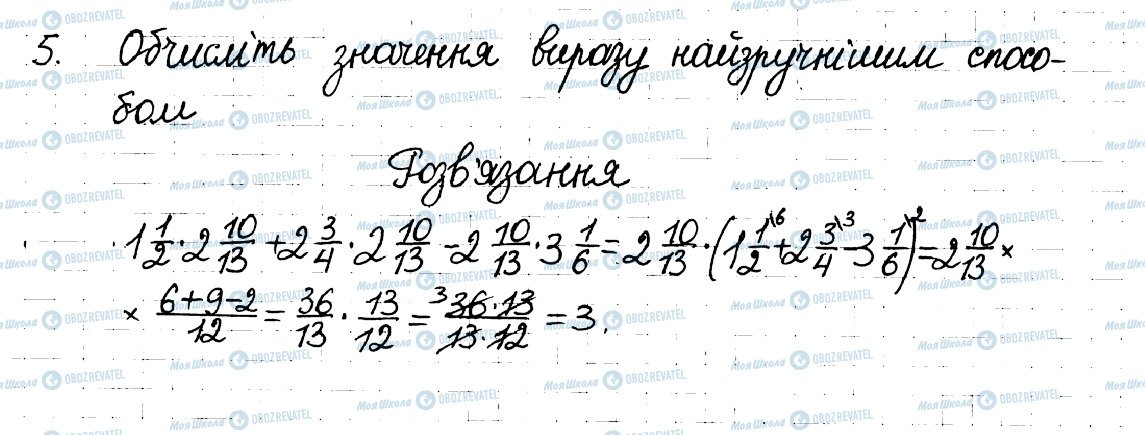 5. Обчисліть значення виразу найзручнішим спосо-
бом
Розв'язання
1 1/2 · 2 10/13 + 2 3/4 · 2 10/13 - 2 10/13 · 3 1/6 = 2 10/13 · (1 1/2\6 + 2 3/4\3 - 3 1/6\2) = 2 10/13 ×
× (6+9-2)/12 = 36/13 · 13/12 = 3 36·13/13·12 = 3.